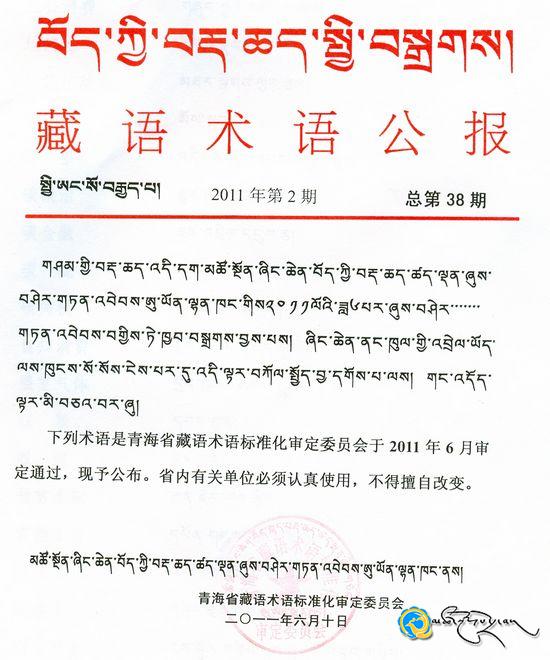 བོད་ཀྱི་བརྡ་ཆད་སྤྱི་བསྒྲགས།
藏语术语公报
སྤྱི་ཨང་སོ་བརྒྱད་པ།
2011 年第 2 期
总第 38 期
གཤམ་གྱི་བརྡ་ཆད་འདི་དག་མཚོ་སྔོན་ཞིང་ཆེན་བོད་ཀྱི་བརྡ་ཆད་ཚད་ལྡན་ཞུས་
བཤེར་གཏན་འབེབས་ཨུ་ཡོན་ལྷན་ཁང་གིས༢༠༡༡ལོའི་ཟླ༦པར་ཞུས་བཤེར་······
གཏན་འབེབས་བགྱིས་ཏེ་ཁྱབ་བསྒྲགས་བྱས་པས། ཞིང་ཆེན་ནང་ཁུལ་གྱི་འབྲེལ་ཡོད་
ལས་ཁུངས་སོ་སོས་ངེས་པར་དུ་འདི་ལྟར་བཀོལ་སྤྱོད་བྱ་དགོས་པ་ལས། གང་འདོད་
ལྟར་མི་བཅའ་བར་ཞུ།
下列术语是青海省藏语术语标准化审定委员会于 2011 年 6 月审
定通过，现予公布。省内有关单位必须认真使用，不得擅自改变。
མཚོ་སྔོན་ཞིང་ཆེན་བོད་ཀྱི་བརྡ་ཆད་ཚད་ལྡན་ཞུས་བཤེར་གཏན་འབེབས་ཨུ་ཡོན་ལྷན་ཁང་ནས།
青海省藏语术语标准化审定委员会
二〇一一年六月十日
审定委员会